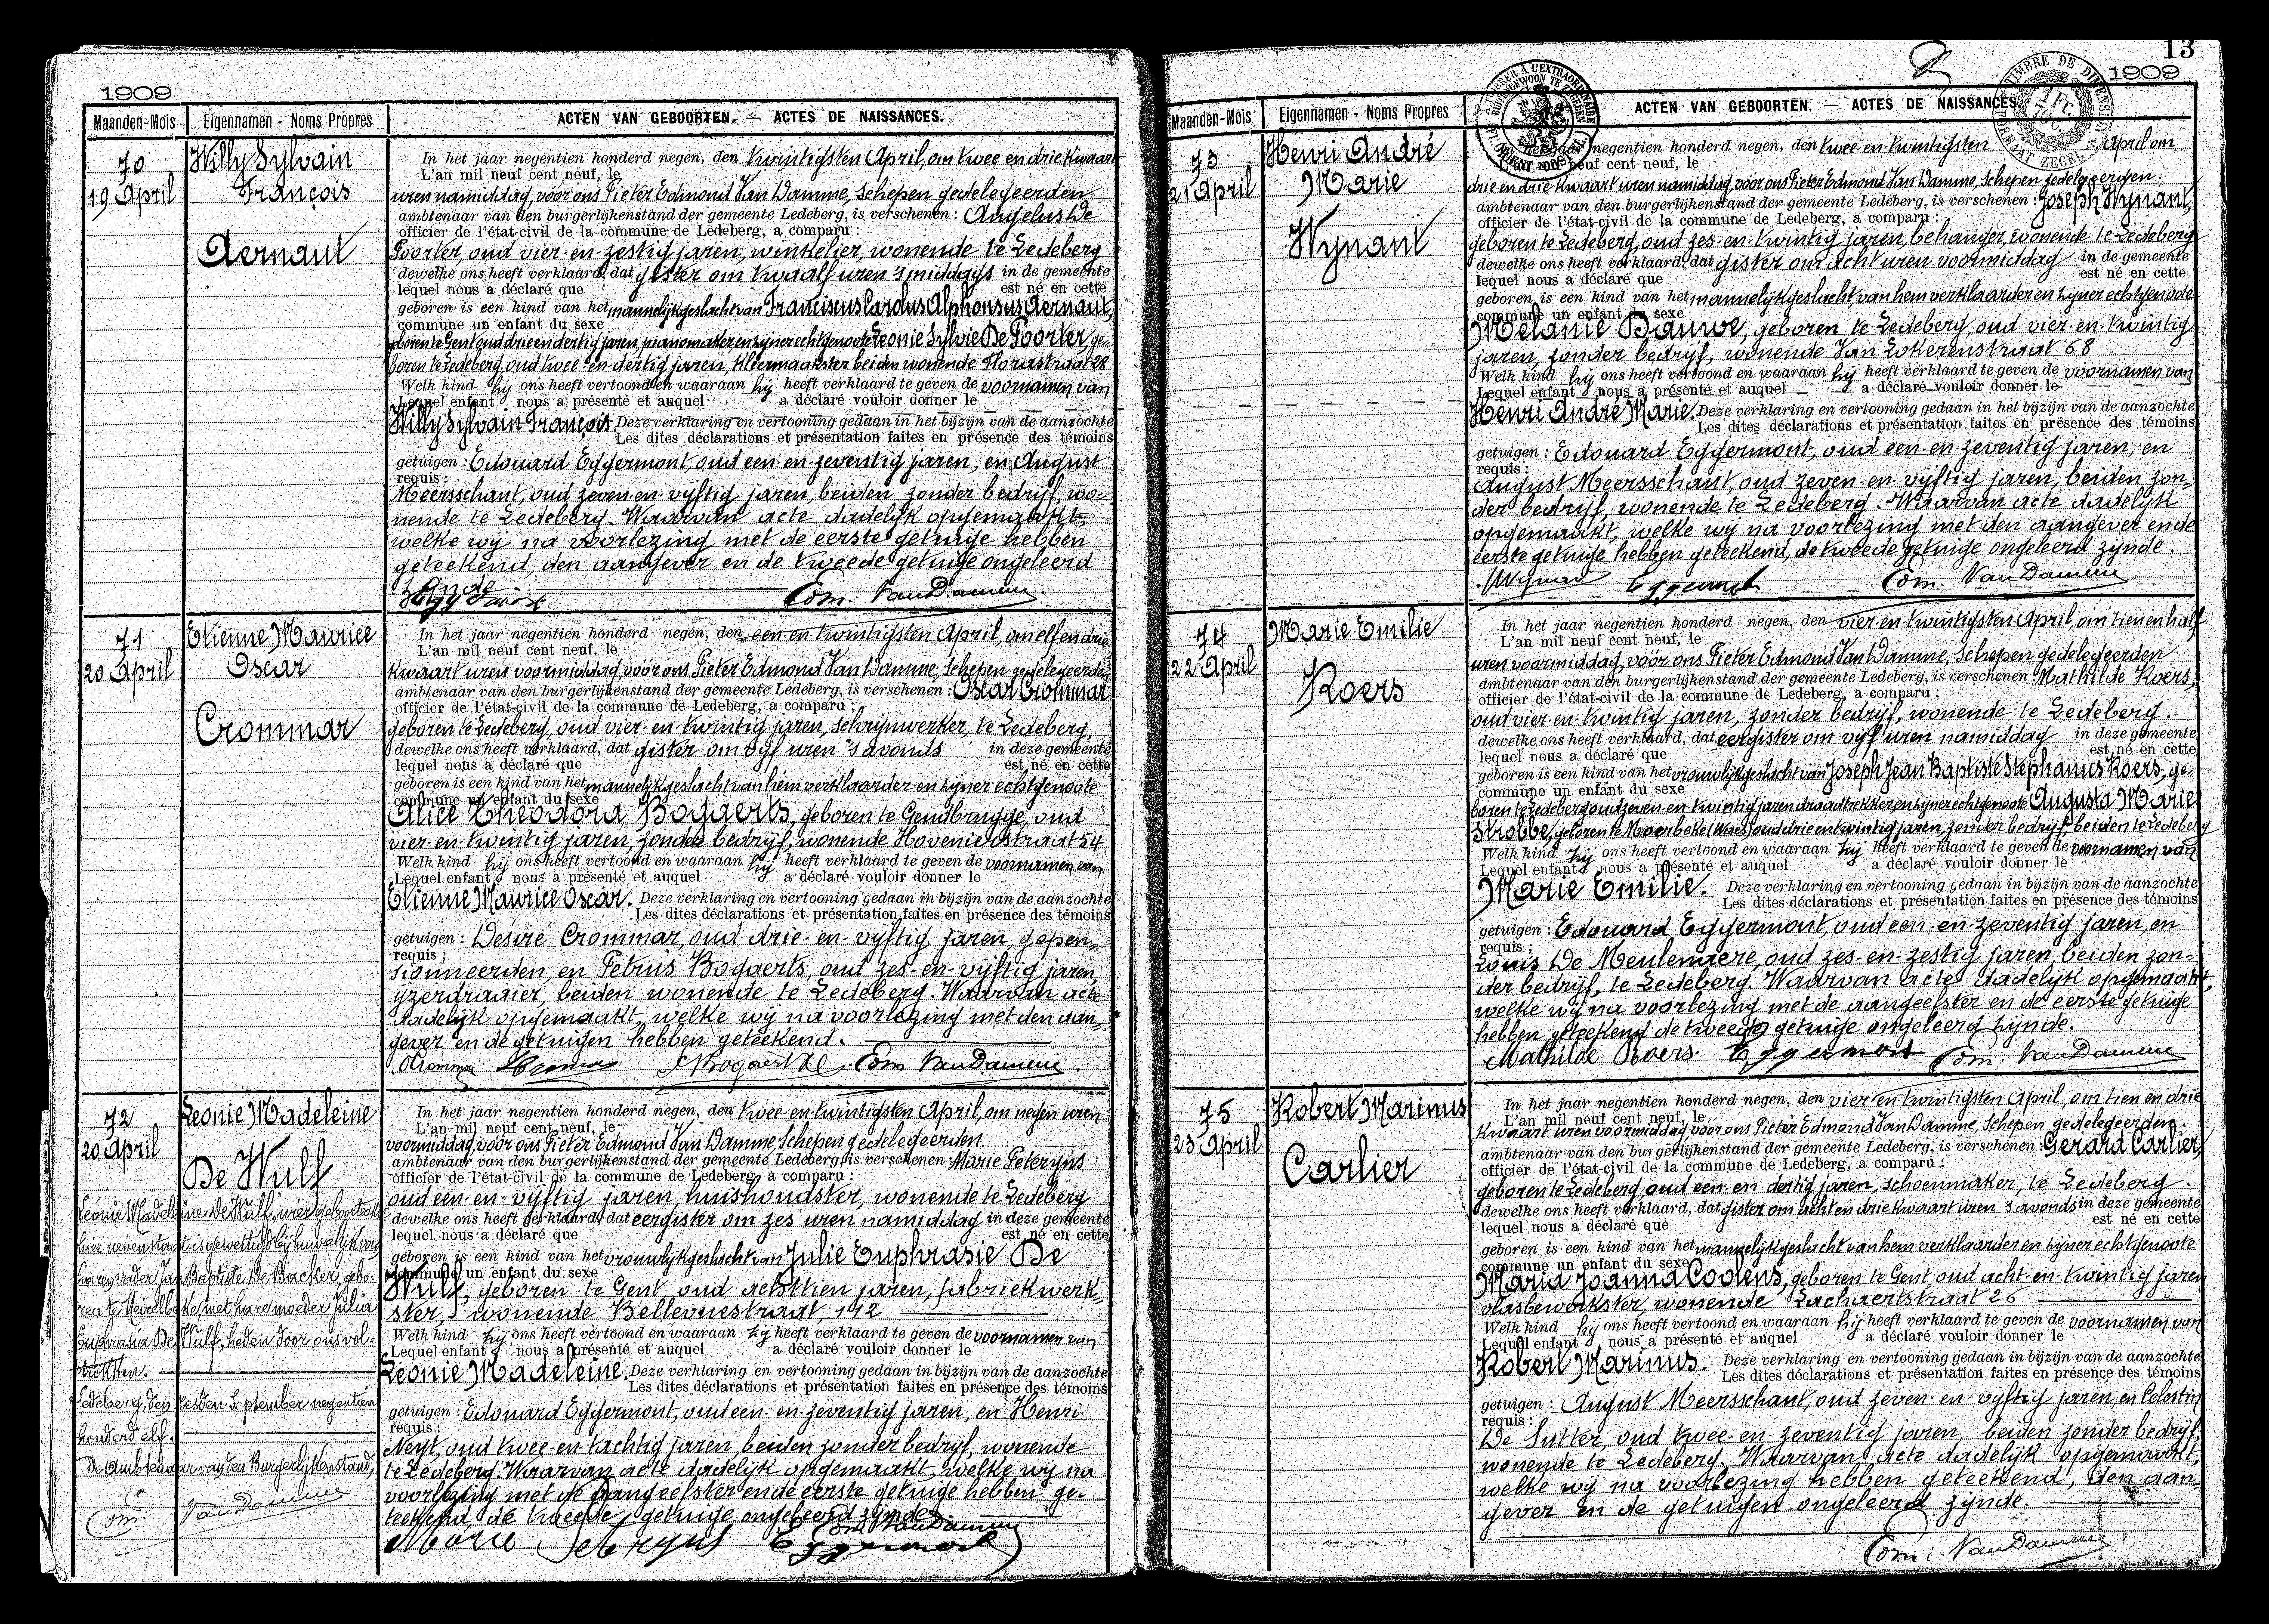 1909
Maanden-Mois Eigennamen - Noms Propres ACTEN VAN GEBOORTEN. — ACTES DE NAISSANCES.
70
19 April
Willy Sylvain
François
Aernaut
In het jaar negentien honderd negen, den twintigsten April, om twee en drie kwaart
L'an mil neuf cent neuf, le
uren namiddag, vóór ons Pieter Edmond Van Damme, Schepen gedelegeerden
ambtenaar van den burgerlijkenstand der gemeente Ledeberg, is verschenen: Angelus De
officier de l'état-civil de la commune de Ledeberg, a comparu:
Poorter, oud vier-en-zestig jaren, winkelier, wonende te Ledeberg
dewelke ons heeft verklaard, dat gister om twaalf uren 'smiddags in de gemeente
lequel nous a déclaré que est né en cette
geboren is een kind van het mannelijk geslacht van Franciscus Carolus Alphonsus Aernaut,
commune un enfant du sexe
geboren te Gent oud drie en dertig jaren, pianomaker, en zijner echtgenoote Leonie Sylvie De Poorter, ge-
boren te Ledeberg, oud twee-en-dertig jaren, kleermaakster beiden wonende Florastraat 28
Welk kind hij ons heeft vertoond en waaraan hij heeft verklaard te geven de voornamen van
Lequel enfant nous a présenté et auquel a déclaré vouloir donner le
Willy Sylvain François. Deze verklaring en vertooning gedaan in het bijzijn van de aanzochte
Les dites déclarations et présentation faites en présence des témoins
getuigen: Edouard Eggermont, oud een-en-zeventig jaren, en August
requis:
Meersschant, oud zeven-en-vijftig jaren, beiden zonder bedrijf, wo-
nende te Ledeberg. Waarvan acte dadelijk opgemaakt,
welke wij na voorlezing met de eerste getuige hebben
geteekend, den aangever en de tweede getuige ongeleerd
zijnde
Eggermont Edm. Van Damme.
71
20 April
Etienne Maurice
Oscar
Crommar
In het jaar negentien honderd negen, den een-en-twintigsten April, om elf en drie
L'an mil neuf cent neuf, le
kwaart uren voormiddag, vóór ons Pieter Edmond Van Damme, Schepen gedelegeerden
ambtenaar van den burgerlijkenstand der gemeente Ledeberg, is verschenen: Oscar Crommar
officier de l'état-civil de la commune de Ledeberg, a comparu;
geboren te Ledeberg, oud vier-en-twintig jaren, schrijnwerker, te Ledeberg,
dewelke ons heeft verklaard, dat gister om vijf uren 's avonds in deze gemeente
lequel nous a déclaré que est né en cette
geboren is een kind van het mannelijk geslacht van hem verklaarder en zijner echtgenoote
commune un enfant du sexe
Alice Theodora Bogaerts, geboren te Gendbrugge, oud
vier-en-twintig jaren, zonder bedrijf, wonende Hovenierstraat 54
Welk kind hij ons heeft vertoond en waaraan hij heeft verklaard te geven de voornamen van
Lequel enfant nous a présenté et auquel a déclaré vouloir donner le
Etienne Maurice Oscar. Deze verklaring en vertooning gedaan in bijzijn van de aanzochte
Les dites déclarations et présentation faites en présence des témoins
getuigen: Désiré Crommar, oud drie-en-vijftig jaren, gepen-
requis;
sionneerden, en Petrus Bogaerts, oud zes-en-vijftig jaren,
ijzerdraaier, beiden wonende te Ledeberg. Waarvan acte
dadelijk opgemaakt, welke wij na voorlezing met den aan-
gever en de getuigen hebben geteekend.
O Crommar Edm. Van Damme.
72
20 April
Leonie Madeleine
De Wulf
Léonie Madeleine De Wulf, wier geboorteakt
hier nevens staat is gewettigd bij huwelijk van
haren vader Jan Baptiste De Backer gebo-
ren te Meirelbeke, met hare moeder Julia
Euphrasia De Wulf, heden door ons vol-
trokken.
Ledeberg, den zesden September negentien
honderd elf.
De Ambtenaar van den Burgerlijkenstand,
Edm: Van Damme
In het jaar negentien honderd negen, den twee-en-twintigsten April, om negen uren
L'an mil neuf cent neuf, le
voormiddag, vóór ons Pieter Edmond Van Damme Schepen gedelegeerden.
ambtenaar van den burgerlijkenstand der gemeente Ledeberg is verschenen: Marie Peteryns
officier de l'état-civil de la commune de Ledeberg, a comparu:
oud een-en-vijftig jaren, huishoudster, wonende te Ledeberg
dewelke ons heeft verklaard, dat eergister om zes uren namiddag in deze gemeente
lequel nous a déclaré que est né en cette
geboren is een kind van het vrouwlijk geslacht van Julie Euphrasie De
commune un enfant du sexe
Wulf, geboren te Gent, oud achttien jaren, fabriekwerk-
ster, wonende Bellevuestraat, 142
Welk kind zij ons heeft vertoond en waaraan zij heeft verklaard te geven de voornamen van
Lequel enfant nous a présenté et auquel a déclaré vouloir donner le
Leonie Madeleine. Deze verklaring en vertooning gedaan in bijzijn van de aanzochte
Les dites déclarations et présentation faites en présence des témoins
getuigen: Edouard Eggermont, oud een-en-zeventig jaren, en Henri
requis:
Neyt, oud twee-en-tachtig jaren, beiden zonder bedrijf, wonende
te Ledeberg. Waarvan acte dadelijk opgemaakt, welke wij na
voorlezing met de aangeefster en de eerste getuige hebben ge-
teekend, de tweede getuige ongeleerd zijnde.
Marie Peteryns Eggermont Edm Van Damme
13
1909
Maanden-Mois Eigennamen - Noms Propres ACTEN VAN GEBOORTEN. — ACTES DE NAISSANCES.
TIMBRE DE DIMENSION
1 Fr.
FORMAAT ZEGEL
73
21 April
Henri André
Marie
Wynant
negentien honderd negen, den twee-en-twintigsten April om
neuf cent neuf, le
drie en drie kwaart uren namiddag, vóór ons Pieter Edmond Van Damme, Schepen gedelegeerden.
ambtenaar van den burgerlijkenstand der gemeente Ledeberg, is verschenen: Joseph Wynant,
officier de l'état-civil de la commune de Ledeberg, a comparu:
geboren te Ledeberg, oud zes-en-twintig jaren, behanger, wonende te Ledeberg
dewelke ons heeft verklaard, dat gister om acht uren voormiddag in de gemeente
lequel nous a déclaré que est né en cette
geboren is een kind van het mannelijk geslacht, van hem verklaarder en zijner echtgenoote
commune un enfant du sexe
Mélanie Bauwe, geboren te Ledeberg, oud vier-en-twintig
jaren, zonder bedrijf, wonende Van Lokerenstraat 68
Welk kind hij ons heeft vertoond en waaraan hij heeft verklaard te geven de voornamen van
Lequel enfant nous a présenté et auquel a déclaré vouloir donner le
Henri André Marie. Deze verklaring en vertooning gedaan in het bijzijn van de aanzochte
Les dites déclarations et présentation faites en présence des témoins
getuigen: Edouard Eggermont, oud een-en-zeventig jaren, en
requis:
August Meersschant, oud zeven-en-vijftig jaren, beiden zon-
der bedrijf, wonende te Ledeberg. Waarvan acte dadelijk
opgemaakt, welke wij na voorlezing met den aangever en de
eerste getuige hebben geteekend, de tweede getuige ongeleerd zijnde.
Eggermont Edm. Van Damme
74
22 April
Marie Emilie
Koers
In het jaar negentien honderd negen, den vier-en-twintigsten April, om tien en half
L'an mil neuf cent neuf, le
uren voormiddag, vóór ons Pieter Edmond Van Damme, Schepen gedelegeerden
ambtenaar van den burgerlijkenstand der gemeente Ledeberg, is verschenen: Mathilde Koers,
officier de l'état-civil de la commune de Ledeberg, a comparu;
oud vier-en-twintig jaren, zonder bedrijf, wonende te Ledeberg.
dewelke ons heeft verklaard, dat eergister om vijf uren namiddag in deze gemeente
lequel nous a déclaré que est né en cette
geboren is een kind van het vrouwlijk geslacht van Joseph Jean Baptiste Stephanus Koers, ge-
commune un enfant du sexe
boren te Ledeberg oud zeven-en-twintig jaren draadtrekker, en zijner echtgenoote Augusta Marie
Strobbe, geboren te Moerbeke (Waes) oud drie en twintig jaren, zonder bedrijf, beiden te Ledeberg
Welk kind zij ons heeft vertoond en waaraan zij heeft verklaard te geven de voornamen van
Lequel enfant nous a présenté et auquel a déclaré vouloir donner le
Marie Emilie. Deze verklaring en vertooning gedaan in bijzijn van de aanzochte
Les dites déclarations et présentation faites en présence des témoins
getuigen: Edouard Eggermont, oud een-en-zeventig jaren, en
requis;
Louis De Meulemaere, oud zes-en-zestig jaren, beiden zon-
der bedrijf, te Ledeberg. Waarvan acte dadelijk opgemaakt,
welke wij na voorlezing met de aangeefster en de eerste getuige
hebben geteekend de tweede getuige ongeleerd zijnde.
Mathilde Koers. Eggermont Edm: Van Damme
75
23 April
Robert Marinus
Carlier
In het jaar negentien honderd negen, den vier-en-twintigsten April, om tien en drie
L'an mil neuf cent neuf, le
kwaart uren voormiddag vóór ons Pieter Edmond Van Damme, Schepen gedelegeerden.
ambtenaar van den burgerlijkenstand der gemeente Ledeberg, is verschenen: Gerard Carlier,
officier de l'état-civil de la commune de Ledeberg, a comparu:
geboren te Ledeberg, oud een-en-dertig jaren, schoenmaker, te Ledeberg.
dewelke ons heeft verklaard, dat gister om acht en drie kwaart uren 's avonds in deze gemeente
lequel nous a déclaré que est né en cette
geboren is een kind van het mannelijk geslacht van hem verklaarder en zijner echtgenoote
commune un enfant du sexe
Maria Joanna Coolens, geboren te Gent, oud acht-en-twintig jaren
vlasbewerkster, wonende Lachaertstraat 26
Welk kind hij ons heeft vertoond en waaraan hij heeft verklaard te geven de voornamen van
Lequel enfant nous a présenté et auquel a déclaré vouloir donner le
Robert Marinus. Deze verklaring en vertooning gedaan in bijzijn van de aanzochte
Les dites déclarations et présentation faites en présence des témoins
getuigen: August Meersschant, oud zeven-en-vijftig jaren, en Celestin
requis:
De Sutter, oud twee-en-zeventig jaren, beiden zonder bedrijf,
wonende te Ledeberg. Waarvan acte dadelijk opgemaakt,
welke wij na voorlezing hebben geteekend, den aan-
gever en de getuigen ongeleerd zijnde.
Edm: Van Damme